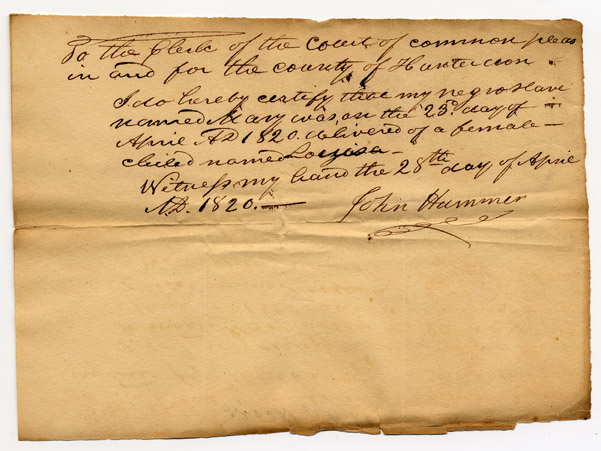 To the Clerk of the Court of common pleas
in and for the county of Hunterdon
I do hereby certify that my negro slave
named Mary was, on the 23d. day of
April AD 1820. delivered of a female
child named Louisa
Witness my hand the 28th day of April
AD. 1820.
John Hammer